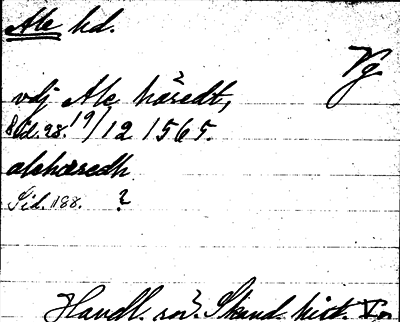 Ale hd.
Vg
vdj Ale häredt,
Sid. 28. 19/12 1565.
aleharedh
Sid. 188. ?
Handl. rör. Skand. hist.